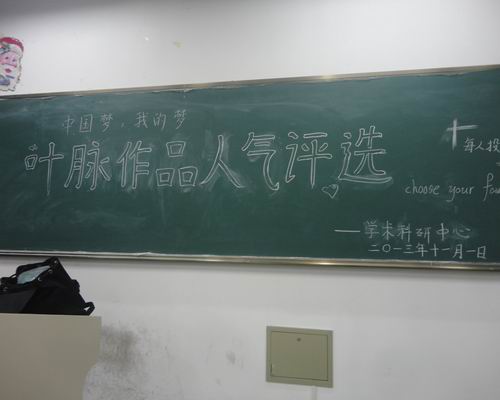 中国梦，我的梦
叶脉作品人气评选
每人投
choose your
——学术科研中心
二〇一三年十一月一日